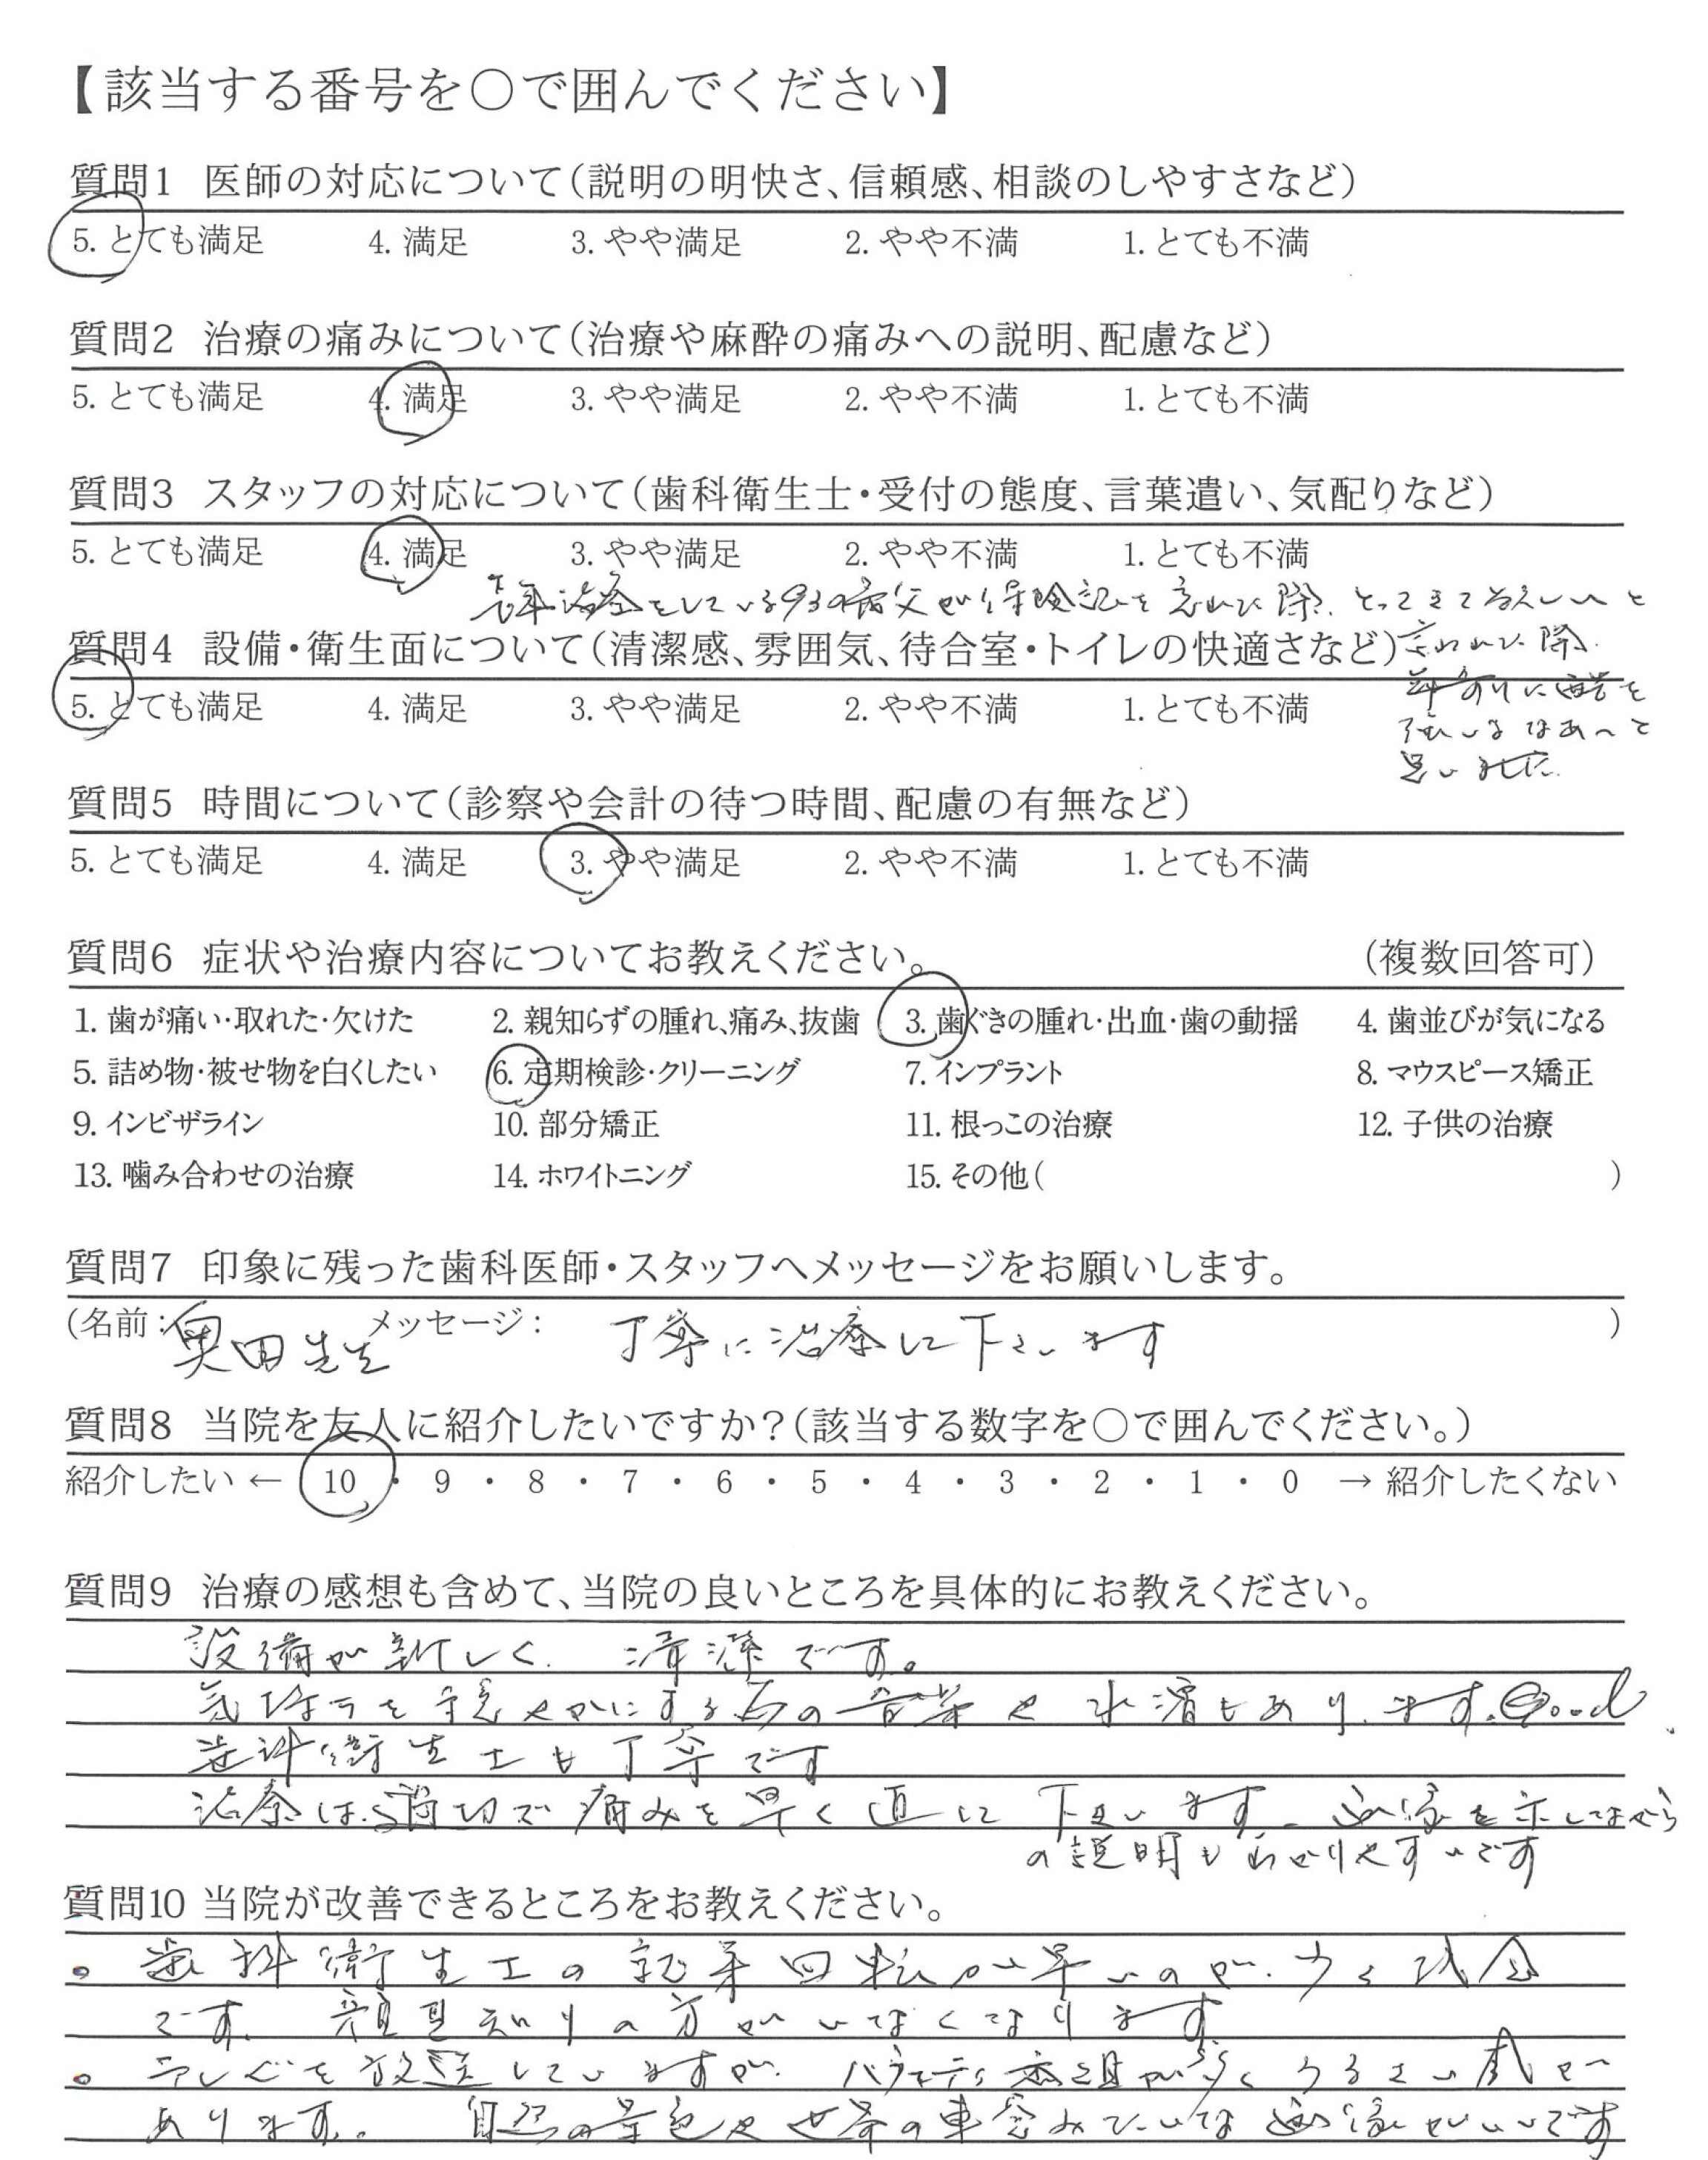 【該当する番号を〇で囲んでください】
質問1 医師の対応について(説明の明快さ、信頼感、相談のしやすさなど)
5. とても満足 4. 満足 3. やや満足 2. やや不満 1. とても不満
質問2 治療の痛みについて(治療や麻酔の痛みへの説明、配慮など)
5. とても満足 4. 満足 3. やや満足 2. やや不満 1. とても不満
質問3 スタッフの対応について(歯科衛生士・受付の態度、言葉遣い、気配りなど)
5. とても満足 4. 満足 3. やや満足 2. やや不満 1. とても不満
治療をしている93の父が保険証を忘れた際、とってきて欲しいと
質問4 設備・衛生面について(清潔感、雰囲気、待合室・トイレの快適さなど)
言われた際、
5. とても満足 4. 満足 3. やや満足 2. やや不満 1. とても不満
年寄りに酷を
強いるなあ〜と
思いました。
質問5 時間について(診察や会計の待つ時間、配慮の有無など)
5. とても満足 4. 満足 3. やや満足 2. やや不満 1. とても不満
質問6 症状や治療内容についてお教えください。 (複数回答可)
1. 歯が痛い・取れた・欠けた 2. 親知らずの腫れ、痛み、抜歯 3. 歯ぐきの腫れ・出血・歯の動揺 4. 歯並びが気になる
5. 詰め物・被せ物を白くしたい 6. 定期検診・クリーニング 7. インプラント 8. マウスピース矯正
9. インビザライン 10. 部分矯正 11. 根っこの治療 12. 子供の治療
13. 噛み合わせの治療 14. ホワイトニング 15. その他( )
質問7 印象に残った歯科医師・スタッフへメッセージをお願いします。
(名前:奥田先生 メッセージ: 丁寧に治療して下さいます )
質問8 当院を友人に紹介したいですか?(該当する数字を〇で囲んでください。)
紹介したい ← 10 ・ 9 ・ 8 ・ 7 ・ 6 ・ 5 ・ 4 ・ 3 ・ 2 ・ 1 ・ 0 → 紹介したくない
質問9 治療の感想も含めて、当院の良いところを具体的にお教えください。
設備が新しく、清潔です。
気持ちを穏やかにする為の音楽や水槽もあります。Good
歯科衛生士も丁寧です
治療は適切で痛みを早く直して下さいます。画像を示しながら
の説明もわかりやすいです
質問10 当院が改善できるところをお教えください。
。歯科衛生士の就業回転が早いのが、少く残念
です。顔見知りの方がいなくなります
。テレビを放送していますが、バラエティ番組が多くうるさい感が
あります。自然の景色や世界の車窓みたいな画像がいいです